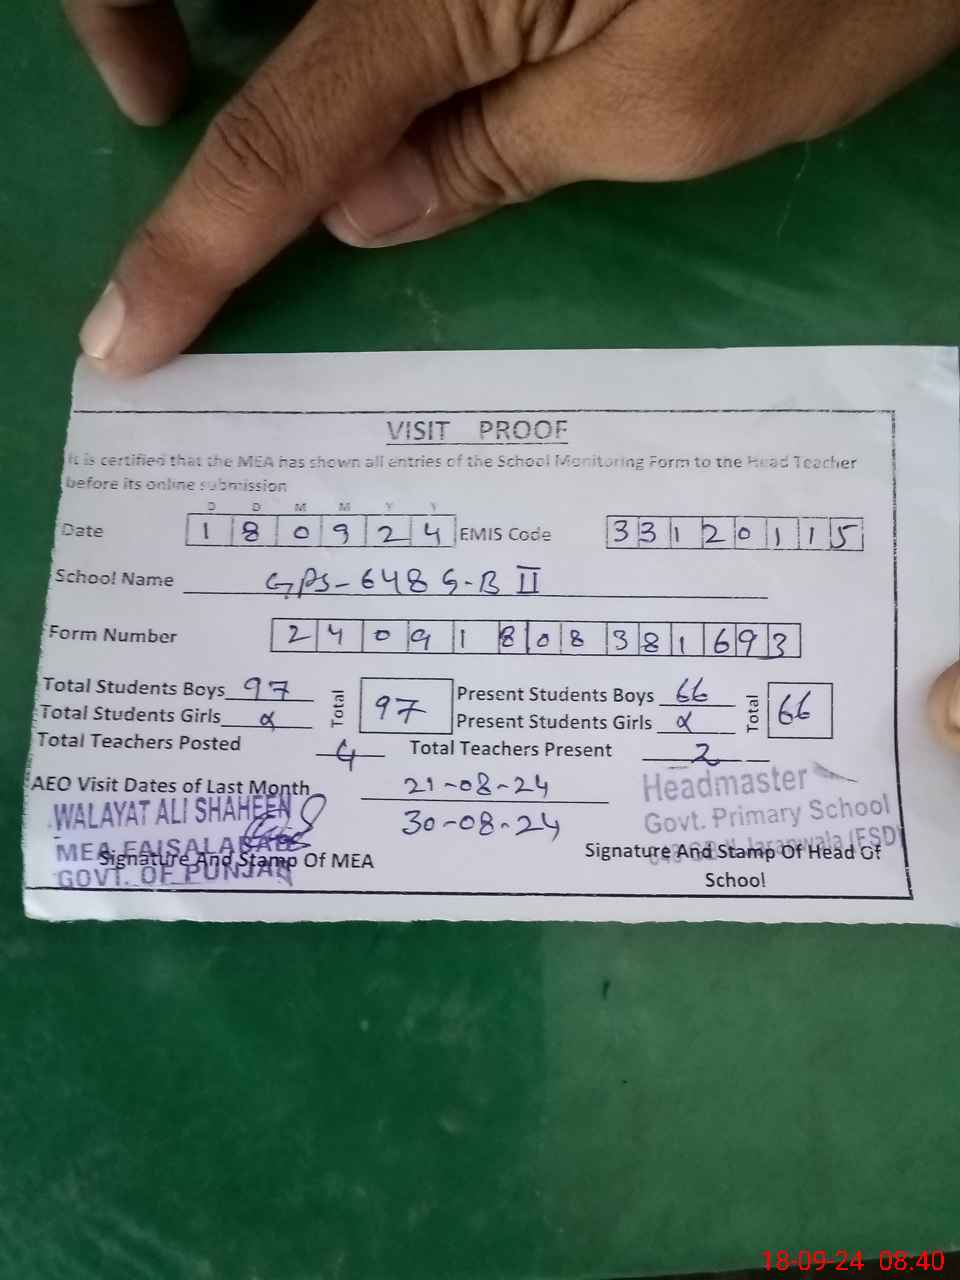 VISIT PROOF
It is certified that the MEA has shown all entries of the School Monitoring Form to the Head Teacher
before its online submission
D D M M Y Y
Date 1 8 0 9 2 4 EMIS Code 3 3 1 2 0 1 1 5
School Name GPS-648 G-B II
Form Number 2 4 0 9 1 8 0 8 3 8 1 6 9 3
Total Students Boys 97 Total 97 Present Students Boys 66 Total 66
Total Students Girls x Present Students Girls x
Total Teachers Posted 4 Total Teachers Present 2
AEO Visit Dates of Last Month 21-08-24
30-08-24
WALAYAT ALI SHAHEEN
MEA FAISALABAD
GOVT. OF PUNJAB
Signature And Stamp Of MEA
Headmaster
Govt. Primary School
Jaranwala (FSD)
Signature And Stamp Of Head Of
School
18-09-24 08:40